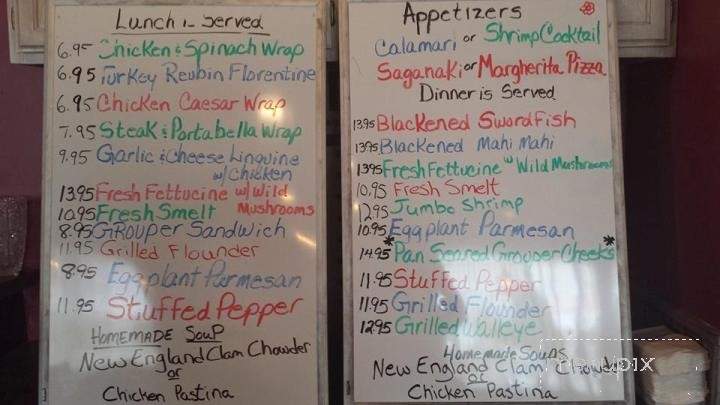 Lunch is Served
6.95 Chicken & Spinach Wrap
6.95 Turkey Reubin Florentine
6.95 Chicken Caesar Wrap
7.95 Steak & Portabella Wrap
9.95 Garlic & Cheese Linguine
w/ Chicken
13.95 Fresh Fettucine w/ Wild
Mushrooms
10.95 Fresh Smelt
8.95 Grouper Sandwich
11.95 Grilled Flounder
8.95 Eggplant Parmesan
11.95 Stuffed Pepper
Homemade Soup
New England Clam Chowder
or
Chicken Pastina
Appetizers
Calamari or Shrimp Cocktail
Saganaki or Margherita Pizza
Dinner is Served
13.95 Blackened Swordfish
13.95 Blackened Mahi Mahi
13.95 Fresh Fettucine w/ Wild Mushrooms
10.95 Fresh Smelt
12.95 Jumbo Shrimp
10.95 Eggplant Parmesan
*14.95 Pan Seared Grouper Cheeks*
11.95 Stuffed Pepper
11.95 Grilled Flounder
12.95 Grilled Walleye
Homemade Soups
New England Clam Chowder
or
Chicken Pastina